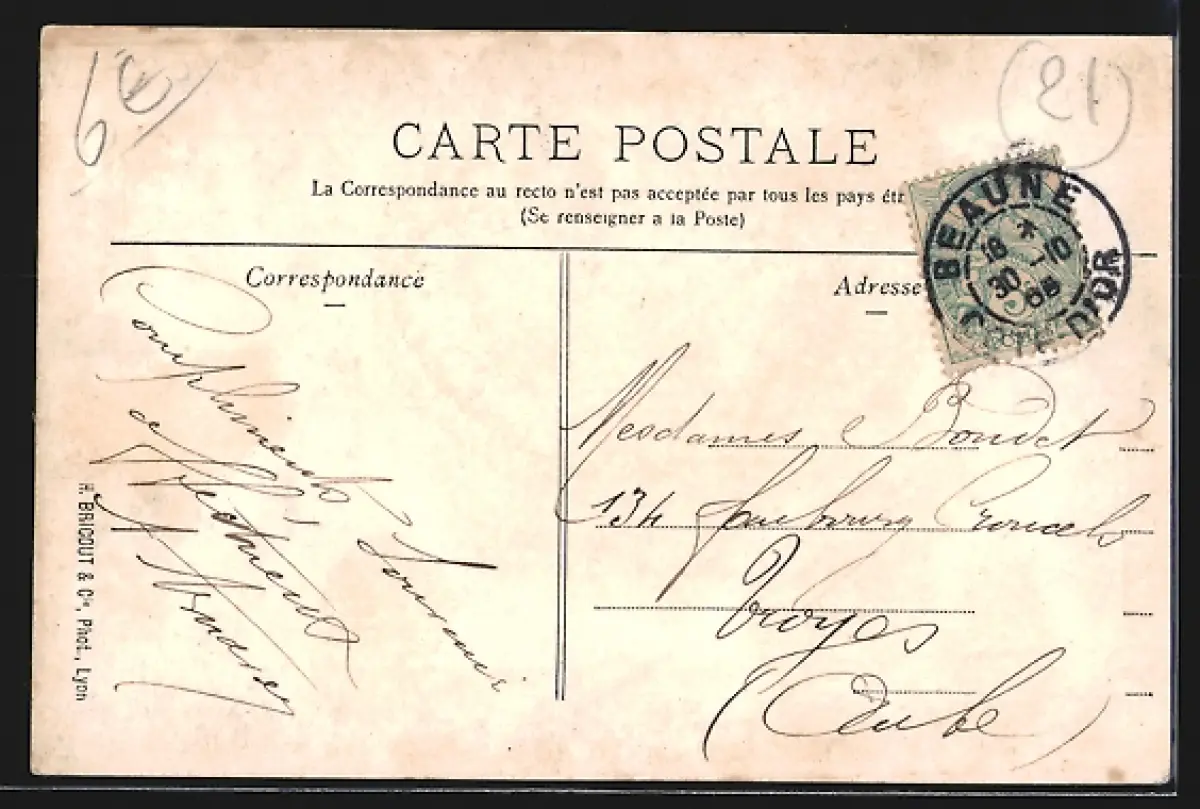 6€
21
CARTE POSTALE
La Correspondance au recto n'est pas acceptée par tous les pays étr
(Se renseigner a la Poste)
BEAUNE
18 * -10
30
D'OR
Correspondance
Adresse
Compliments
de
Mesdames Boudet
134 faubourg Croncels
Troyes
(Aube)
H. BRICOUT & Cie, Phot., Lyon